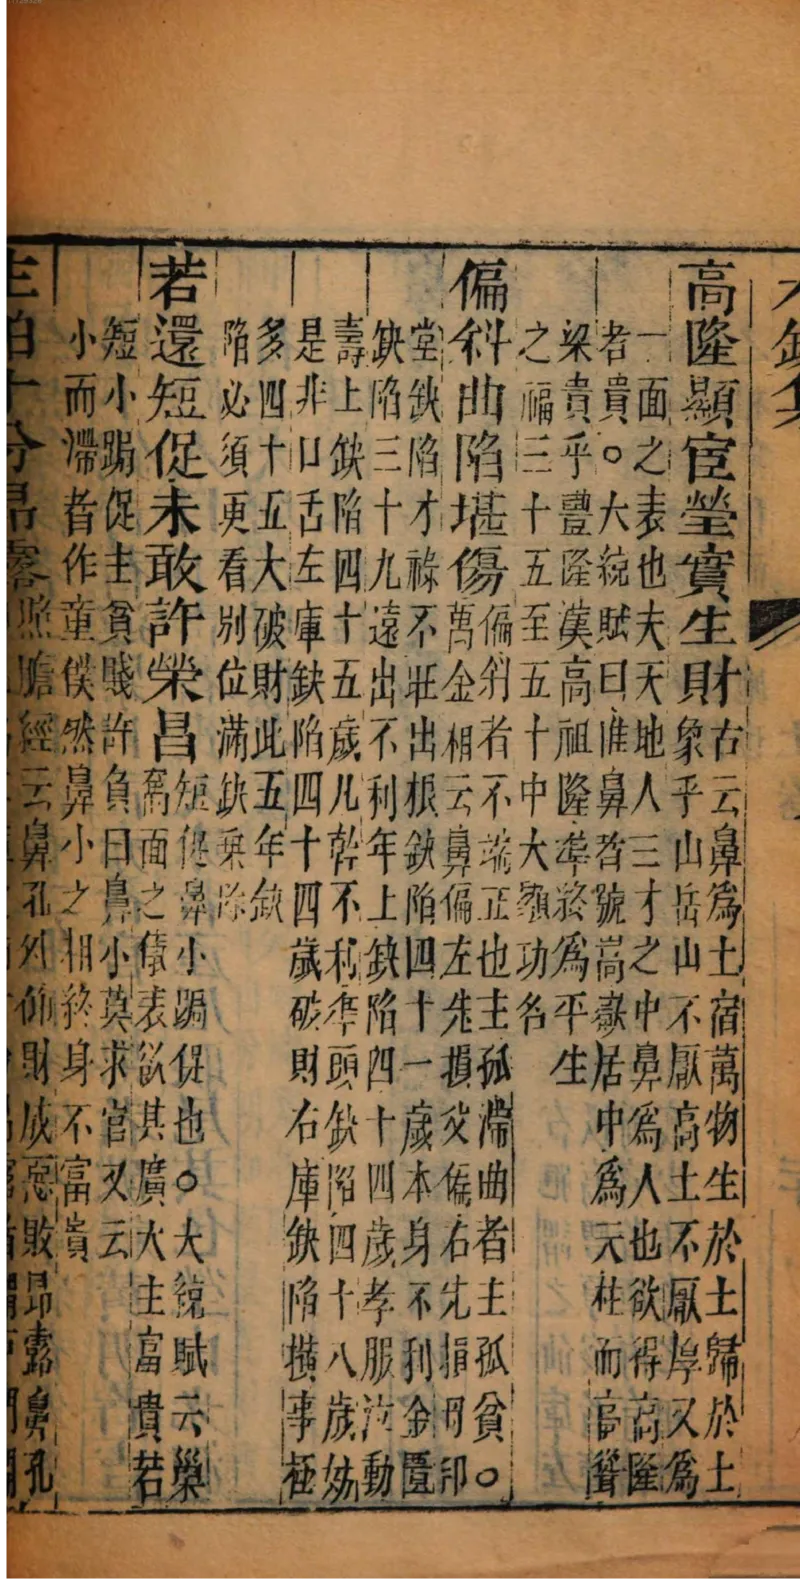 高隆顯宦瑩實生財
古云鼻為土宿萬物生於土歸於土
象乎山岳山不厭高土不厭厚又為
一面之表也夫天地人三才之中鼻為人也欲得高隆
者貴○大統賦曰惟鼻者號嵩嶽居中為天柱而高聳
梁貴乎豐隆漢高祖隆準終為平生
之福三十五至五十中大顯功名
偏斜曲陷堪傷
偏斜者不端正也主孤滯曲者主孤貧○
萬金相云鼻偏左先損父偏右先損母印
堂缺陷才祿不旺出根缺陷四十一歲本身不利金匱
缺陷三十九遠出不利年上缺陷四十四歲孝服泣動
壽上缺陷四十五歲凡幹不利準頭缺陷四十八歲妨
是非口舌左庫缺陷四十四歲破財右庫缺陷橫事極
多四十五大破財此五年缺
陷必須更看別位滿缺乘除
若還短促未敢許榮昌
短促鼻小跼促也○大統賦云
為面之儀表欲其廣大主富貴若
短小跼促主貧賤許負曰鼻小莫求官又云
小而滯者作童僕然鼻小之相終身不富貴
怕十分昂露
照膽經云鼻孔外仰財成惡敗昂露鼻孔